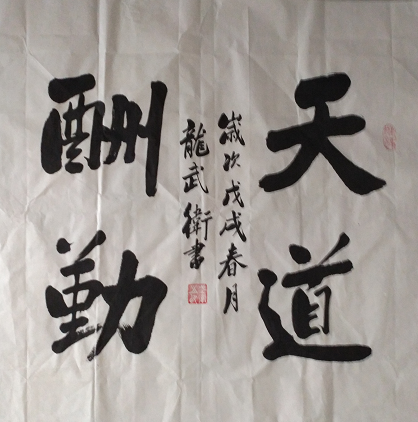 天道
酬勤
歲次戊戌春月
龍武衛書